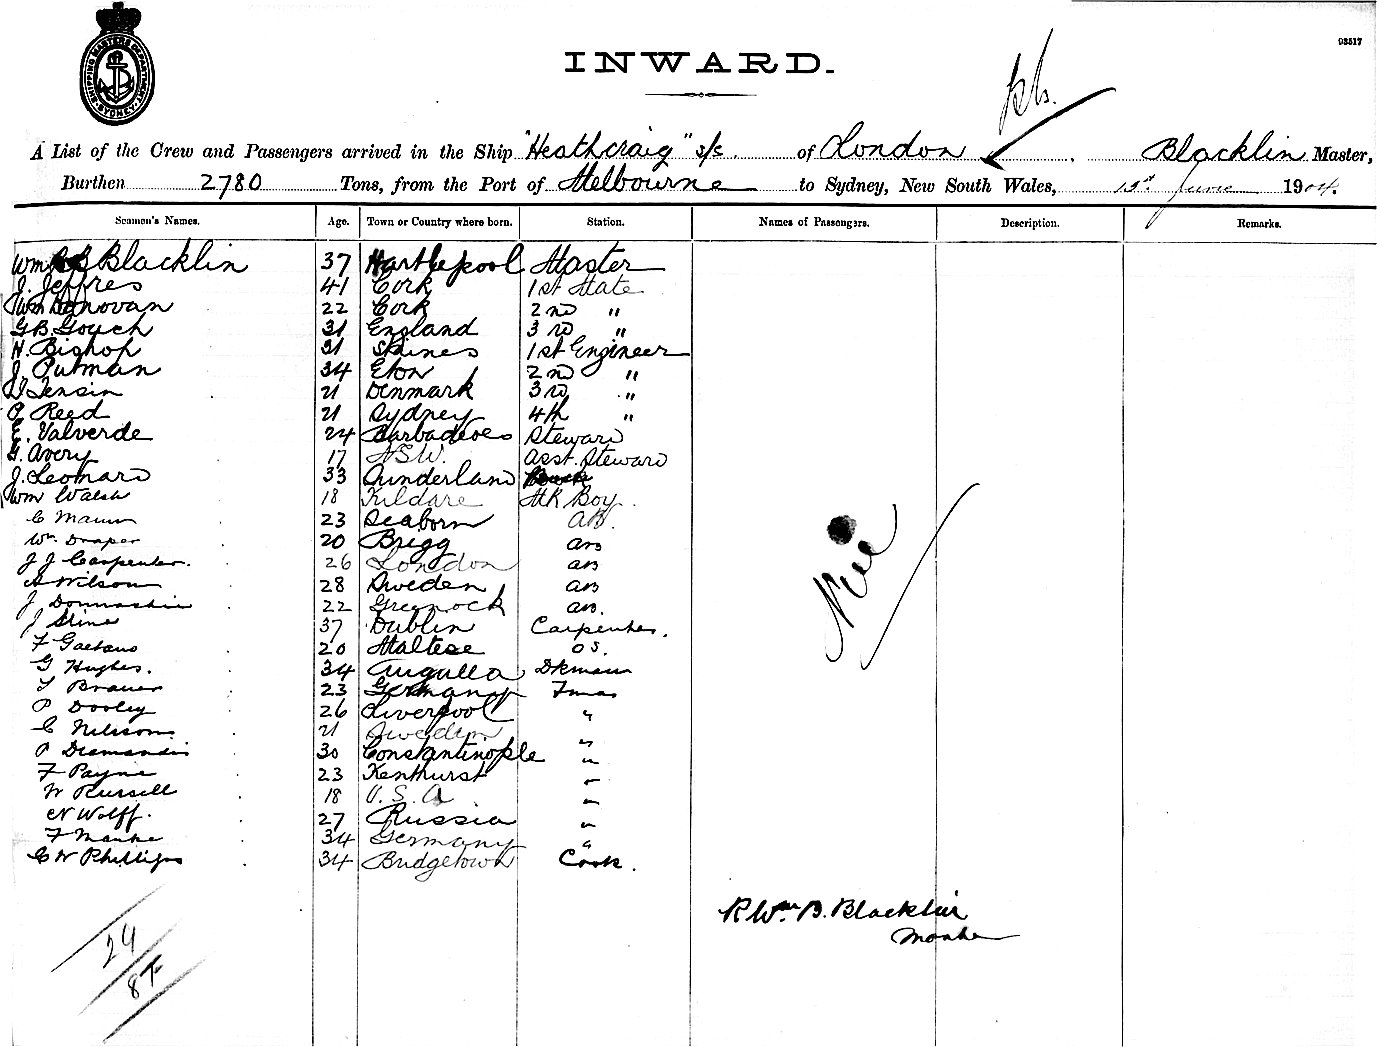 SHIPPING MASTERS DEPARTMENT SYDNEY
93517
INWARD.
A List of the Crew and Passengers arrived in the Ship "Heathcraig" s/s. of London Blacklin Master,
Burthen 2780 Tons, from the Port of Melbourne to Sydney, New South Wales, June 1904.
Seamen's Names. Age. Town or Country where born. Station. Names of Passengers. Description. Remarks.
Wm B Blacklin 37 Hartlepool Master
J. Jeffres 41 Cork 1st Mate
Wm Donovan 22 Cork 2nd "
G B. Gouch 31 England 3rd "
H. Bishop 31 Skines 1st Engineer
J. Putman 34 Eton 2nd "
Jensin 21 Denmark 3rd "
P Reed 21 Sydney 4th "
E. Valverde 24 Barbadoes Steward
G. Avery 17 NSW. Asst. Steward
J. Leonard 33 Sunderland
Wm Walsh 18 Kildare Boy
C Mann 23 Seaborn AB.
Wm Draper 20 Brigg AB
J J Carpenter. 26 London AB
A Wilson 28 Sweden AB
J 22 Greenock AB.
J 37 Dublin Carpenter.
F Gaetano 20 Maltese OS.
G Hughes. 34 Anguilla Dkman
Brauer 23 Germany Fman
P Dooley 26 Liverpool "
C Nilsson 21 Sweden "
P Diamandis 30 Constantinople "
F Payne 23 Kenthurst "
W Russell 18 U.S.A "
N Wolff. 27 Russia "
F Manke 34 Germany "
C W Phillips 34 Bridgetown Cook.
Nil
R Wm B. Blacklin
Master
29